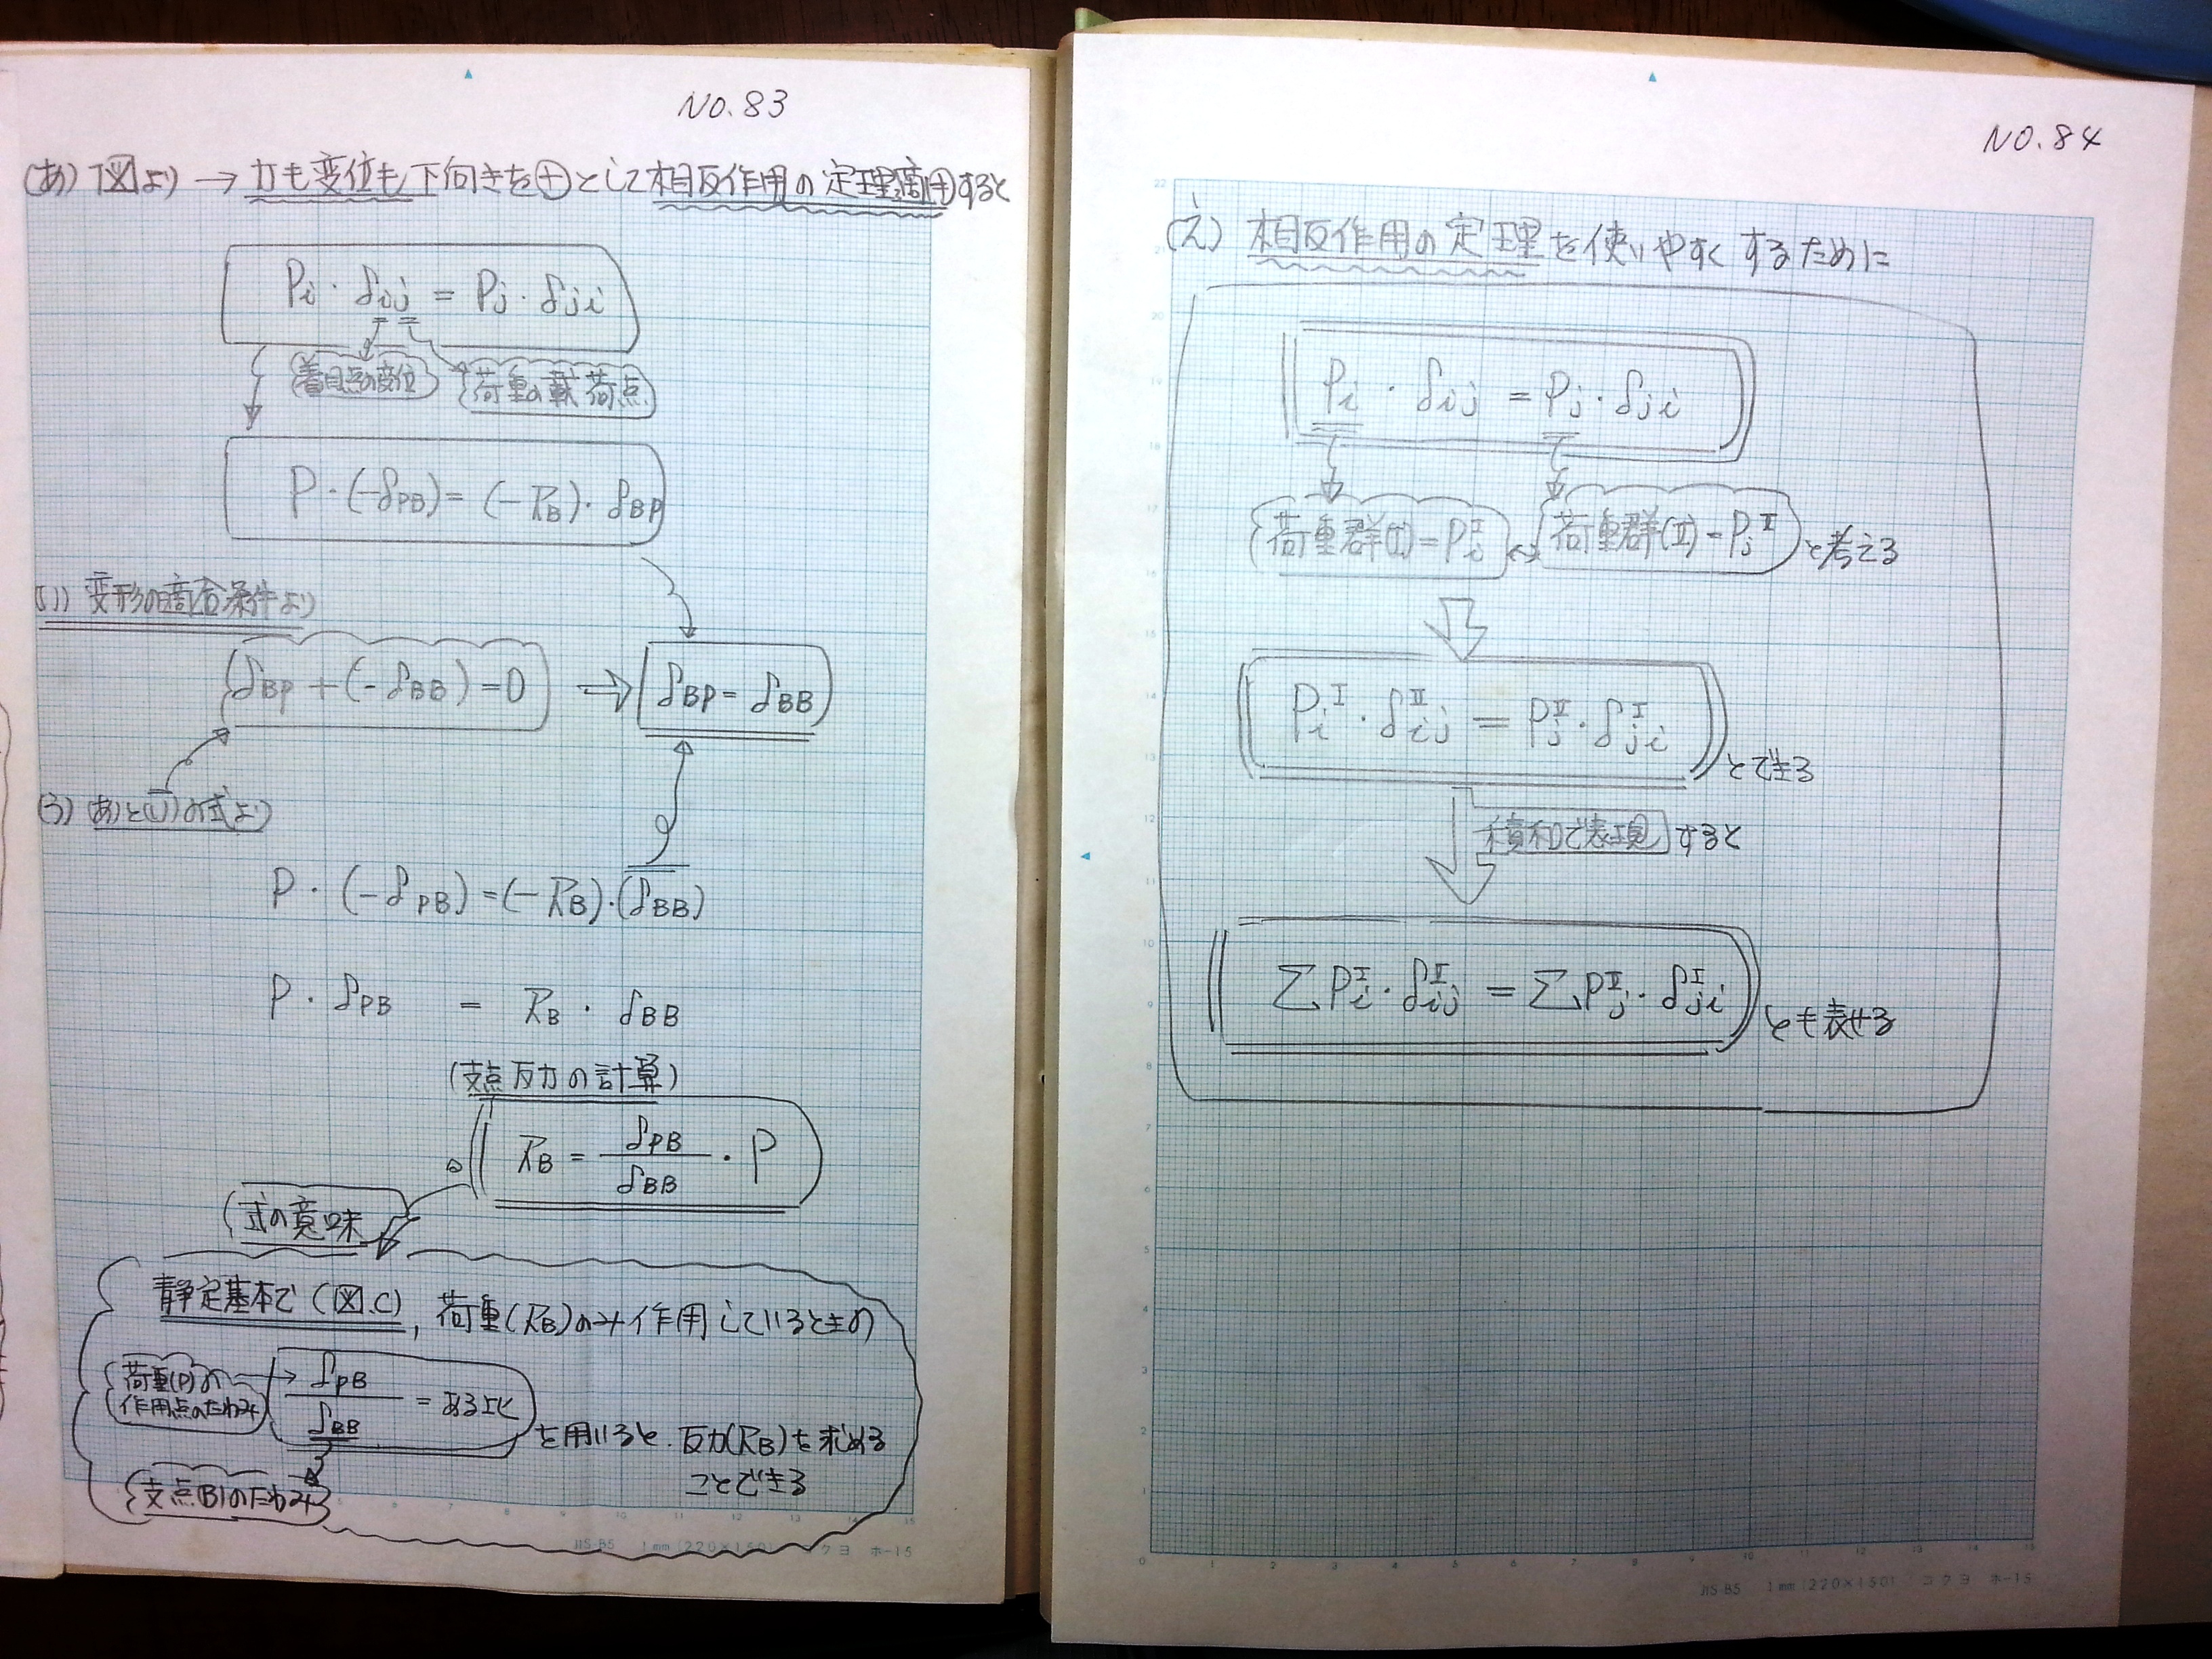 NO.83
(あ) 下図より → 力も変位も下向きを⊕として相反作用の定理適用すると
Pi・δij = Pj・δji
着目点の変位
荷重の載荷点
P・(-δPB) = (-RB)・δBP
(い) 変形の適合条件より
δBP + (-δBB) = 0 ⇒ δBP = δBB
(う) (あ)と(い)の式より
P・(-δPB) = (-RB)・(δBB)
P・δPB = RB・δBB
(支点反力の計算)
RB = δPB/δBB ・P
式の意味
静定基本で(図.C), 荷重(RB)のみ作用しているときの
荷重(P)の
作用点のたわみ
δPB/δBB = ある比
を用いると、反力(RB)を求める
ことできる
支点(B)のたわみ
JIS-B5 1mm(220×150) コクヨ ホ-15
NO.84
(え) 相反作用の定理を使いやすくするために
Pi・δij = Pj・δji
荷重群(I) = Pi^I ⇔ 荷重群(II) = Pj^II と考える
Pi^I・δij^II = Pj^II・δji^I
とできる
積和で表現すると
ΣPi^I・δij^II = ΣPj^II・δji^I
とも表せる
JIS-B5 1mm(220×150) コクヨ ホ-15